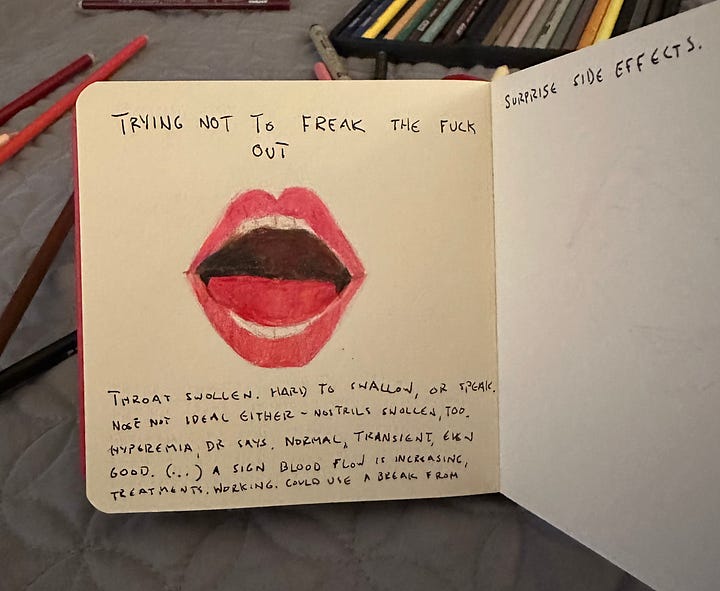 TRYING NOT TO FREAK THE FUCK
OUT
THROAT SWOLLEN. HARD TO SWALLOW, OR SPEAK.
NOSE NOT IDEAL EITHER - NOSTRILS SWOLLEN, TOO.
HYPEREMIA, DR SAYS. NORMAL, TRANSIENT, EVEN
GOOD. (...) A SIGN BLOOD FLOW IS INCREASING,
TREATMENTS. WORKING. COULD USE A BREAK FROM
SURPRISE SIDE EFFECTS.